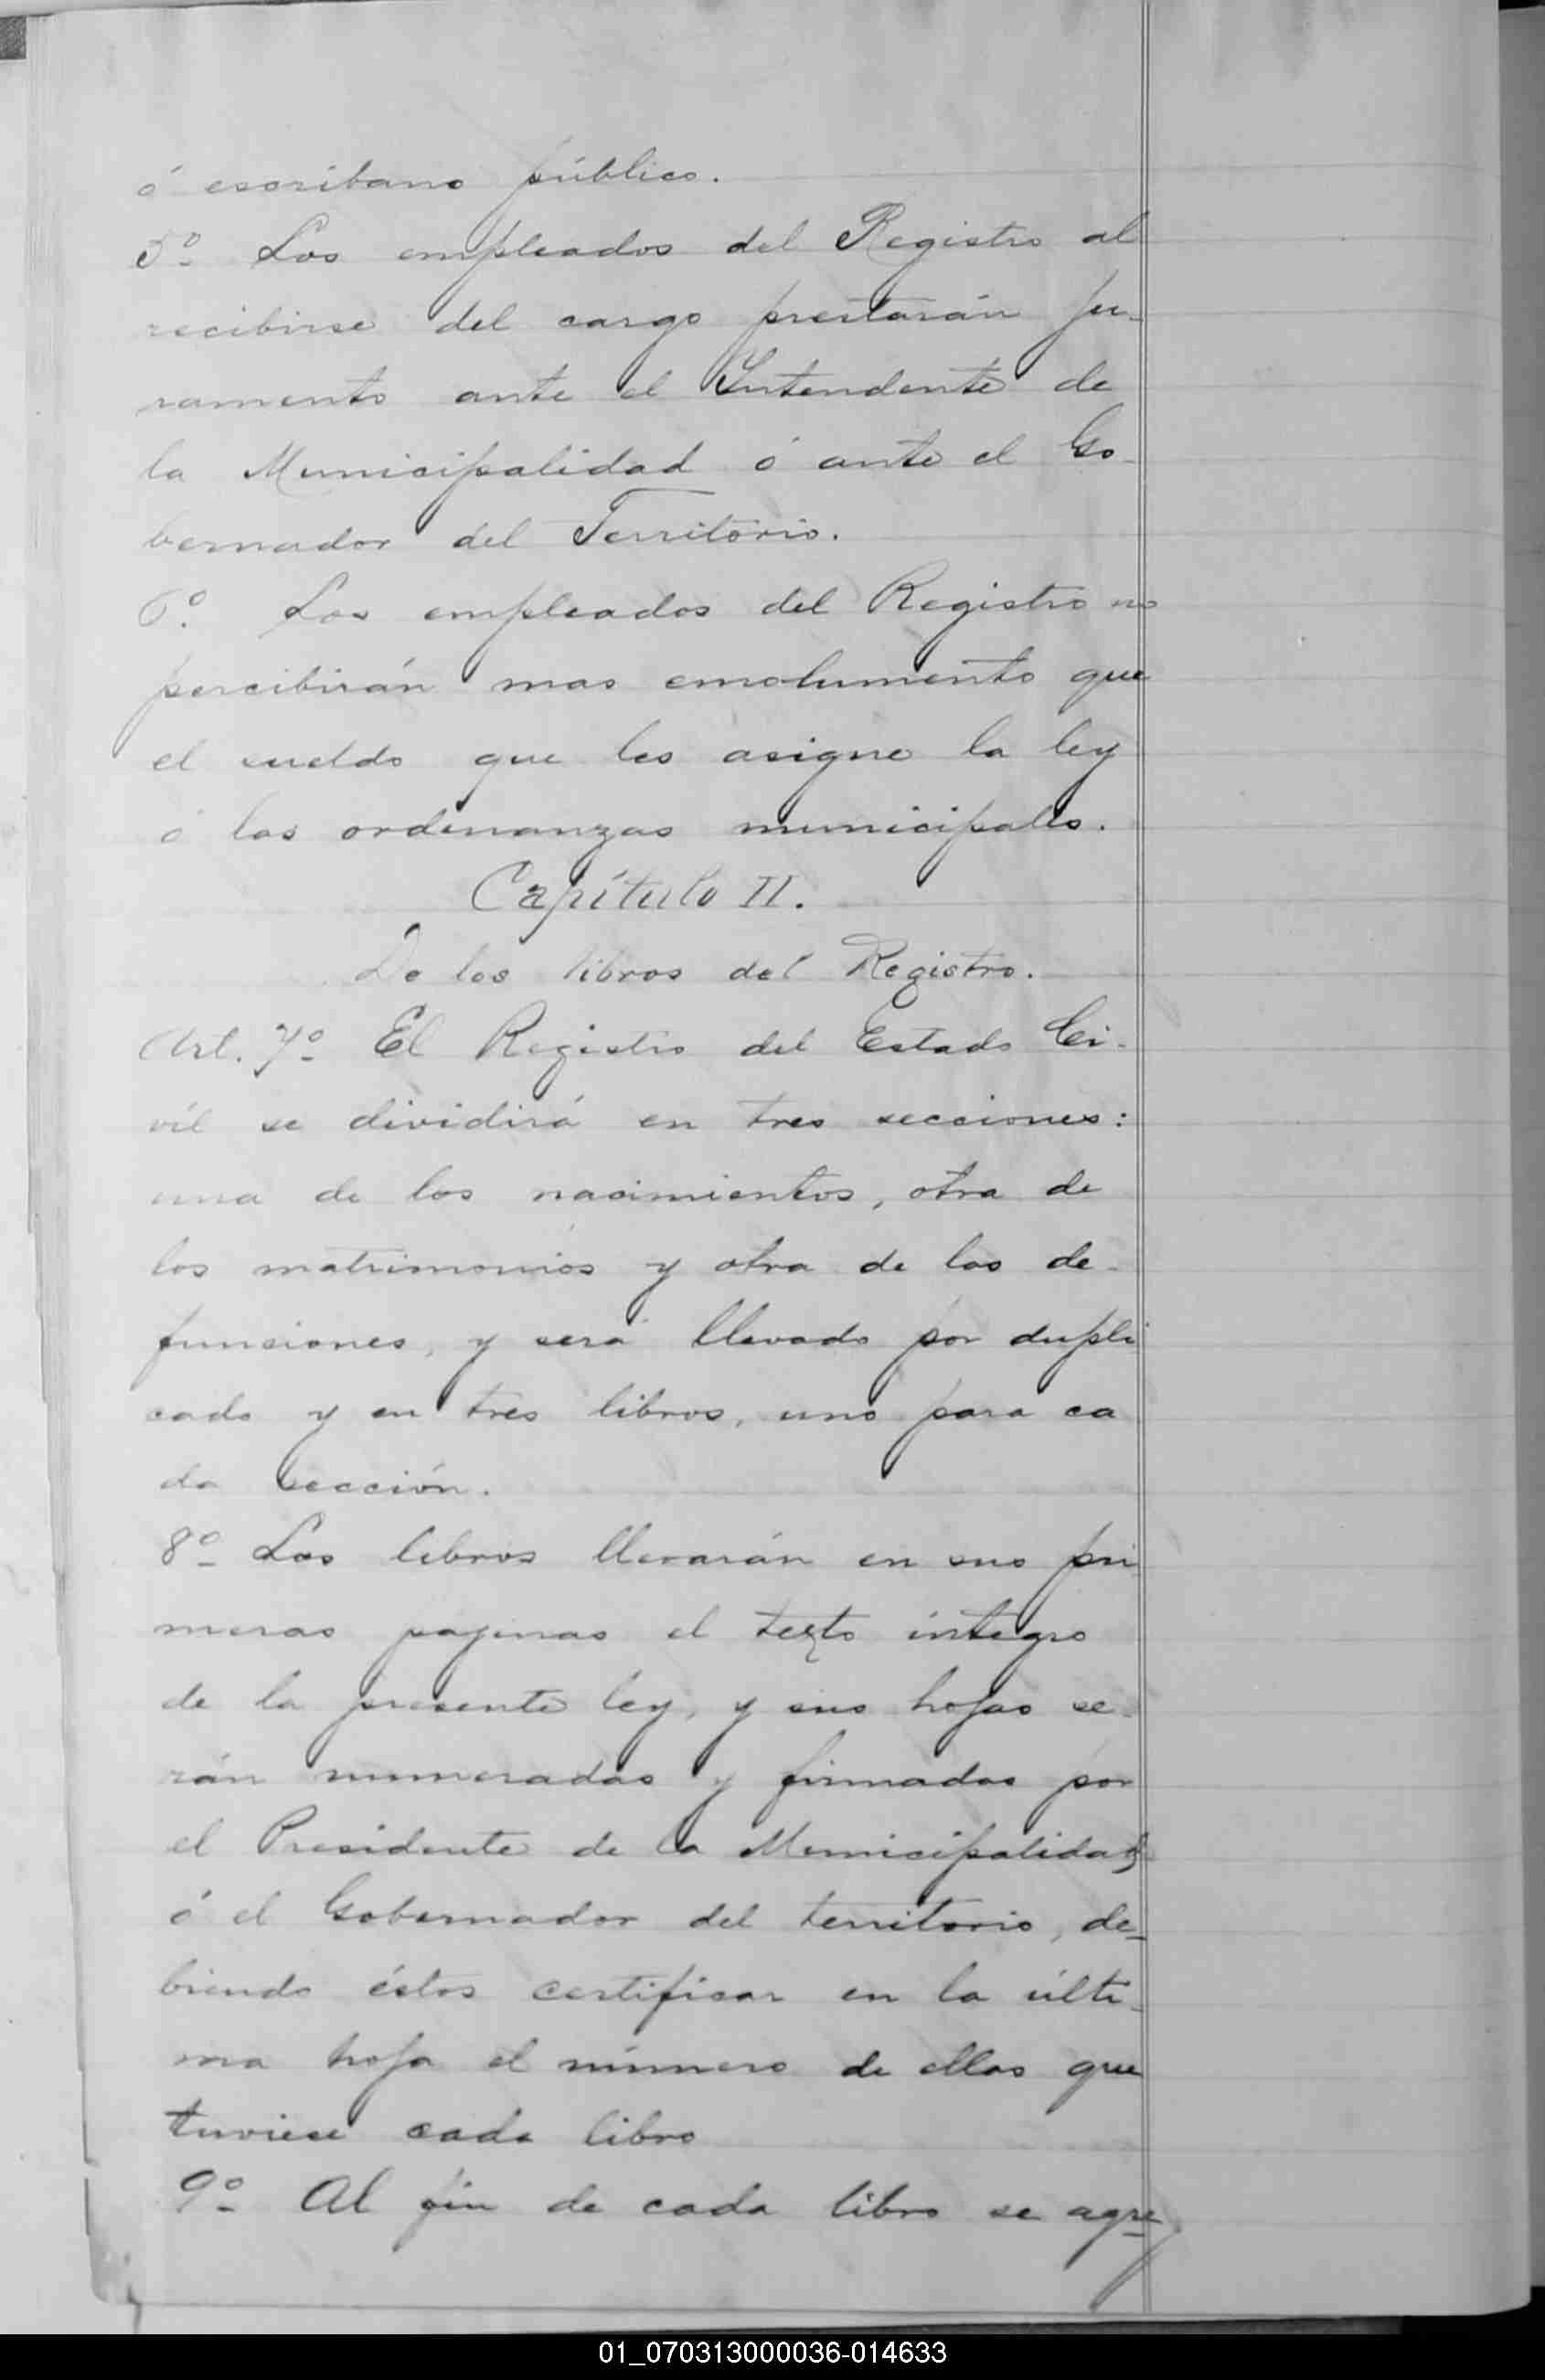 ó escribano público.
5º Los empleados del Registro al
recibirse del cargo prestarán ju-
ramento ante el Intendente de
la Municipalidad ó ante el Go-
bernador del Territorio.
6º. Los empleados del Registro no
percibirán mas emolumento que
el sueldo que les asigne la ley
ó las ordenanzas municipales.
Capítulo II.
De los libros del Registro.
Art. 7º El Registro del Estado Ci-
vil se dividirá en tres secciones:
una de los nacimientos, otra de
los matrimonios y otra de las de-
funciones, y será llevado por dupli
cado y en tres libros, uno para ca
da sección.
8º Los libros llevarán en sus pri
meras pajinas el texto íntegro
de la presente ley, y sus hojas se-
rán numeradas y firmadas por
el Presidente de la Municipalidad
ó el Gobernador del territorio, de-
biendo éstos certificar en la últi-
ma hoja el número de ellas que
tuviese cada libro
9º Al fin de cada libro se agre
01_070313000036-014633